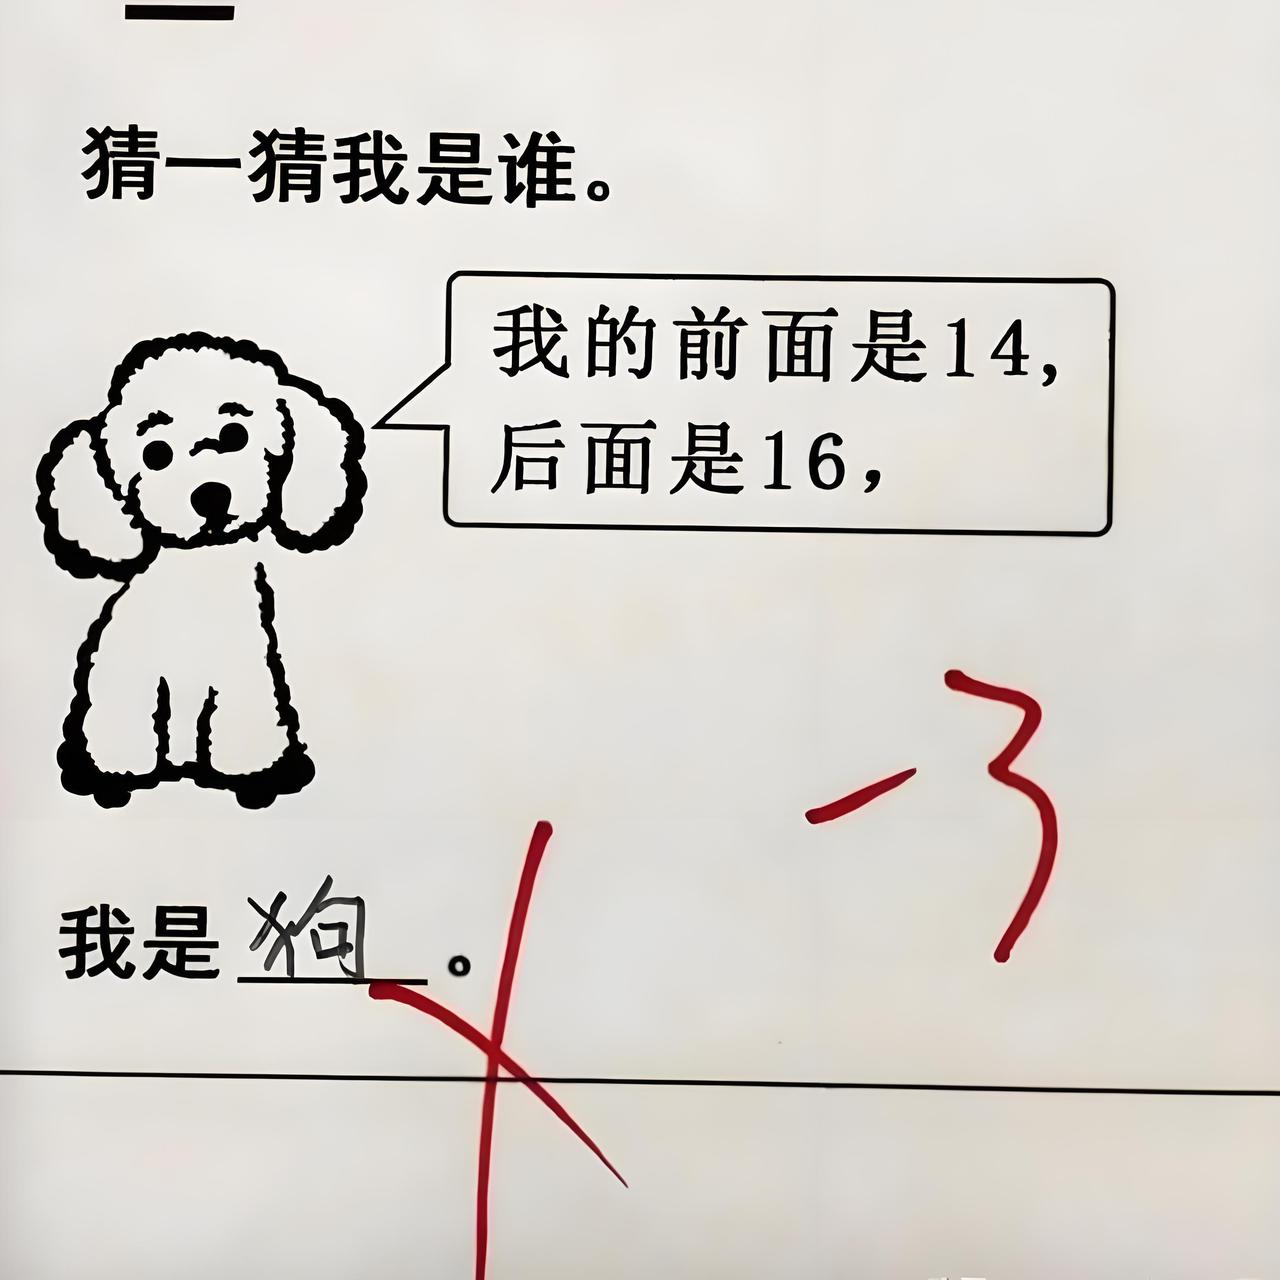 猜一猜我是谁。
我的前面是14,
后面是16，
-3
我是 狗 。